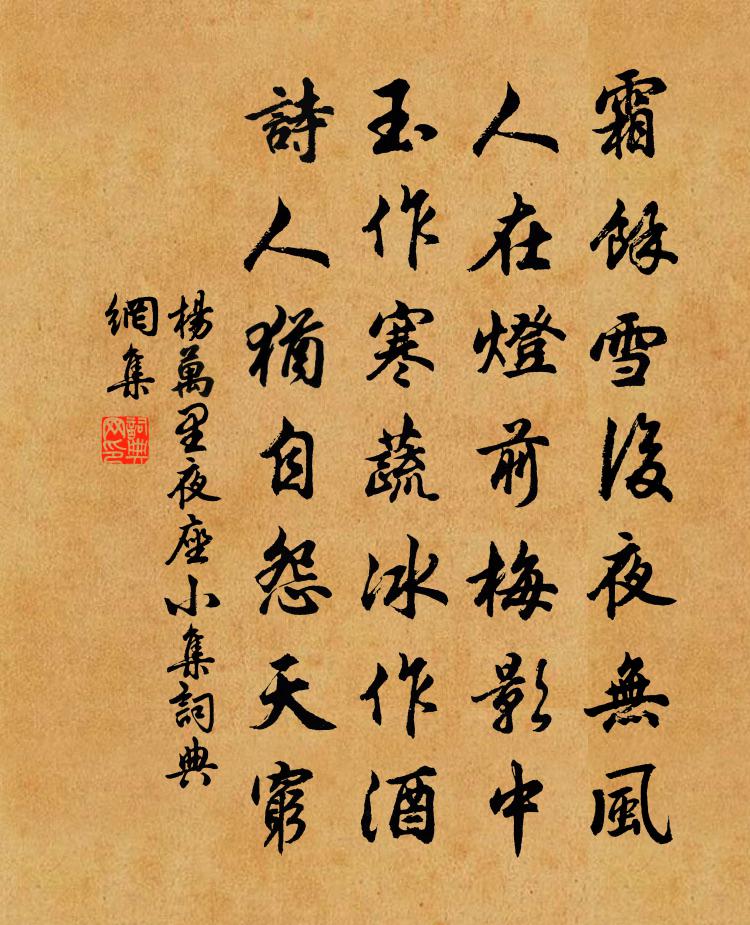 霜餘雪後夜無風
人在燈前梅影中
玉作寒蔬冰作酒
詩人猶自怨天窮
楊萬里夜座小集詞典
網集
詞典
网印